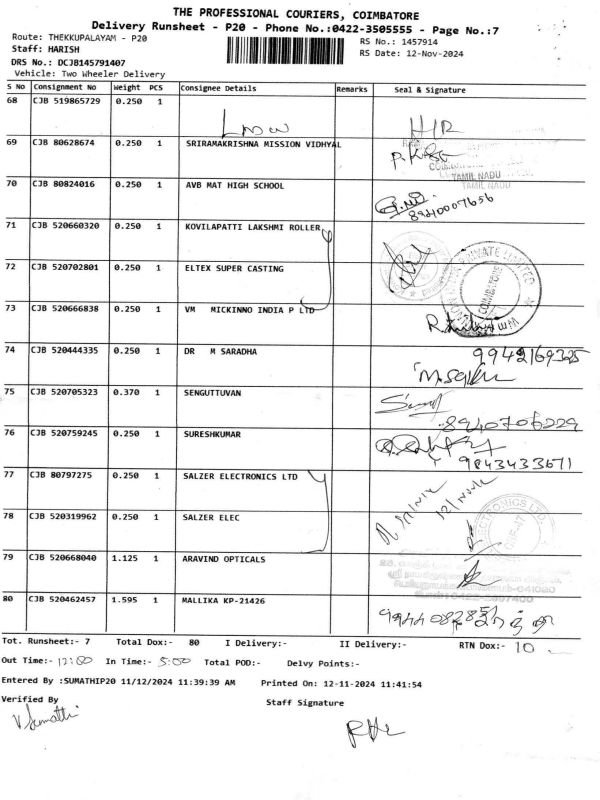 THE PROFESSIONAL COURIERS, COIMBATORE
Delivery Runsheet - P20 - Phone No.:0422-3505555 - Page No.:7
Route: THEKKUPALAYAM - P20
RS No.: 1457914
Staff: HARISH
RS Date: 12-Nov-2024
DRS No.: DCJB145791407
Vehicle: Two Wheeler Delivery
S No Consignment No Weight PCS Consignee Details Remarks Seal & Signature
68 CJB 519865729 0.250 1
69 CJB 80628674 0.250 1 SRIRAMAKRISHNA MISSION VIDHYAL
TAMIL NADU
70 CJB 80824016 0.250 1 AVB MAT HIGH SCHOOL
TAMIL NADU
8940007656
71 CJB 520660320 0.250 1 KOVILAPATTI LAKSHMI ROLLER
72 CJB 520702801 0.250 1 ELTEX SUPER CASTING
PRIVATE LIMITED
COIMBATORE
73 CJB 520666838 0.250 1 VM MICKINNO INDIA P LTD
74 CJB 520444335 0.250 1 DR M SARADHA
9942169325
75 CJB 520705323 0.370 1 SENGUTTUVAN
8940706229
76 CJB 520759245 0.250 1 SURESHKUMAR
9843433671
77 CJB 80797275 0.250 1 SALZER ELECTRONICS LTD
78 CJB 520319962 0.250 1 SALZER ELEC
79 CJB 520668040 1.125 1 ARAVIND OPTICALS
80 CJB 520462457 1.595 1 MALLIKA KP-21426
Tot. Runsheet:- 7 Total Dox:- 80 I Delivery:- II Delivery:- RTN Dox:- 10
Out Time:- 12:00 In Time:- 5:00 Total POD:- Delvy Points:-
Entered By :SUMATHIP20 11/12/2024 11:39:39 AM Printed On: 12-11-2024 11:41:54
Verified By Staff Signature